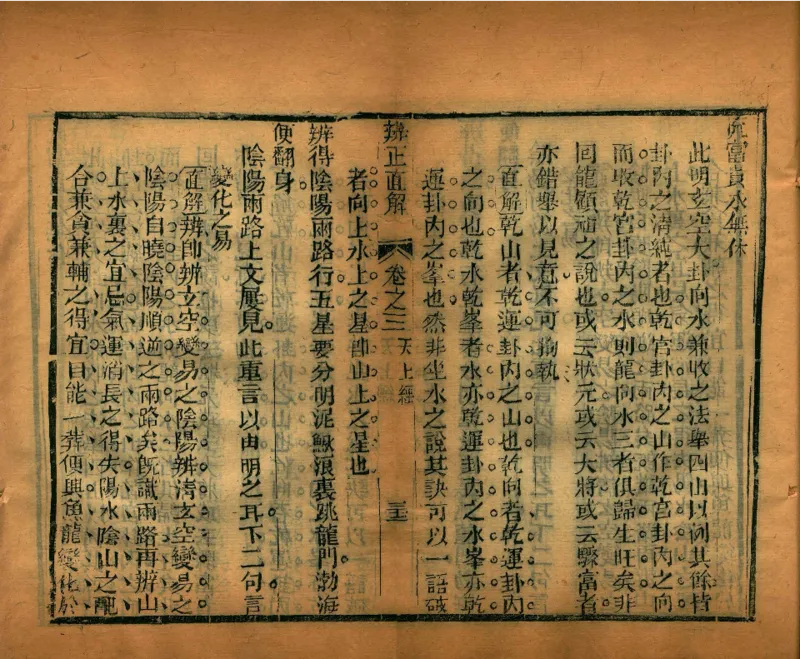 旺富貴永無休
此明玄空大卦向水兼收之法舉四山以例其餘皆
卦內之清純者也乾宮卦內之山作乾宮卦內之向
而收乾宮卦內之水則龍向水三者俱歸生旺矣非
回龍顧祖之說也或云狀元或云大將或云驟富者
亦錯舉以見意不可拘執
直解乾山者乾運卦內之山也乾向者乾運卦內
之向也乾水乾峯者水亦乾運卦內之水峯亦乾
運卦內之峯也然非坐水之說其訣可以一語破
辨正直解 卷之三 天上經 三五
者向上水上之星卽山上之星也
辨得陰陽兩路行五星要分明泥鰍浪裏跳龍門渤海
便翻身
陰陽兩路上文屢見此重言以申明之耳下二句言
變化之易
直解辨卽辨玄空變易之陰陽辨清玄空變易之
陰陽自曉陰陽順逆之兩路矣旣識兩路再辨山
上水裏之宜忌氣運消長之得失陽水陰山之配
合兼貪兼輔之得宜自能一葬便興魚龍變化於